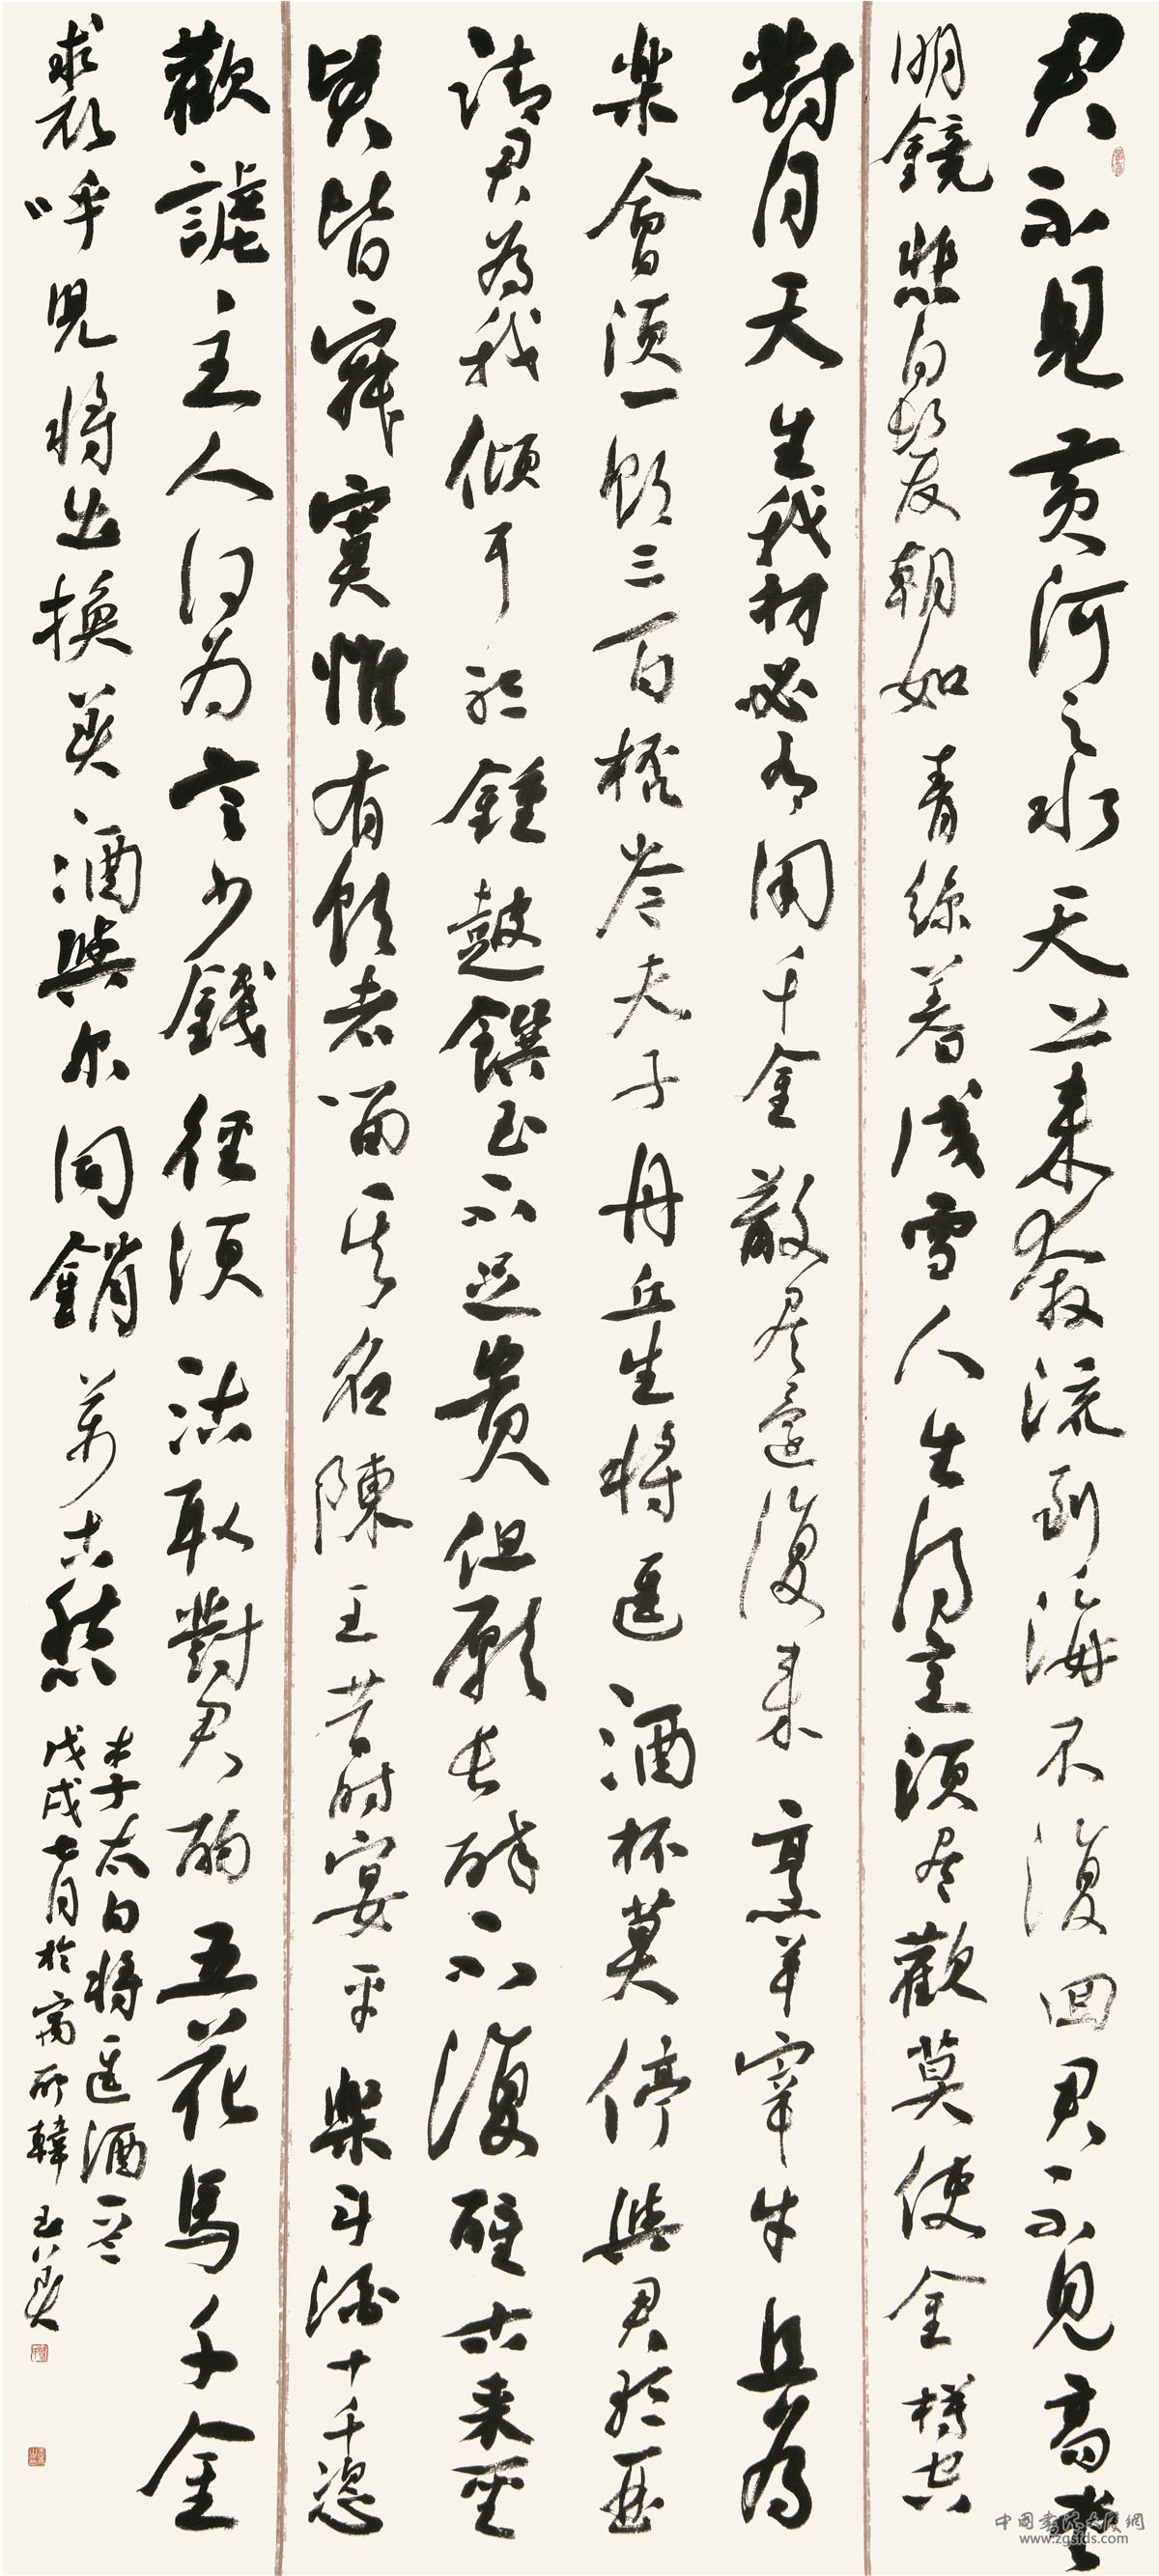 君不見黃河之水天上來奔流到海不復回君不見高堂
明鏡悲白髮朝如青絲暮成雪人生得意須盡歡莫使金樽空
對月天生我材必有用千金散盡還復來烹羊宰牛且為
樂會須一飲三百杯岑夫子丹丘生將進酒杯莫停與君歌一曲
請君為我傾耳聽鐘鼓饌玉不足貴但願長醉不復醒古來聖
賢皆寂寞惟有飲者留其名陳王昔時宴平樂斗酒十千恣
歡謔主人何為言少錢徑須沽取對君酌五花馬千金
裘呼兒將出換美酒與爾同銷萬古愁
李太白將進酒
戊戌七月於寓所韓
www.zgsfds.com